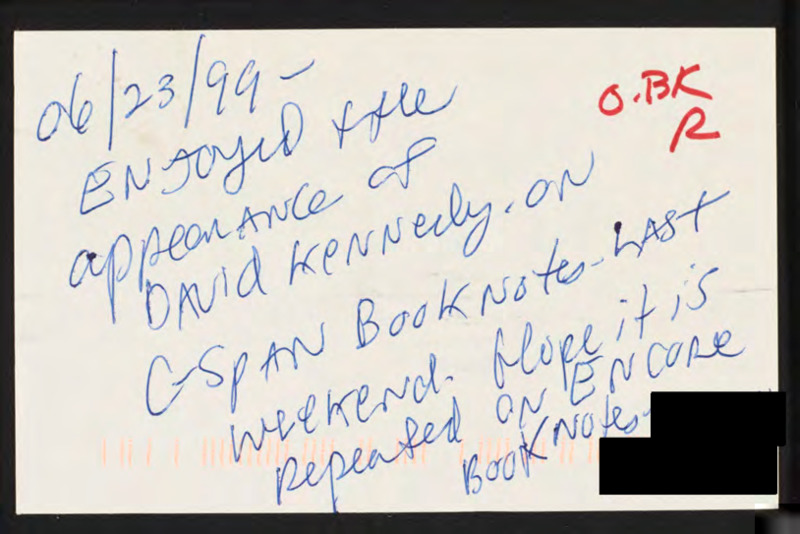 06/23/99 -
O.BK
R
ENJOYED the
appearance of
DAVID KENNEDY. ON
C-SPAN BOOKNOTES - LAST
WEEKEND. Hope it is
repeated ON ENCORE
BOOKNOTES -